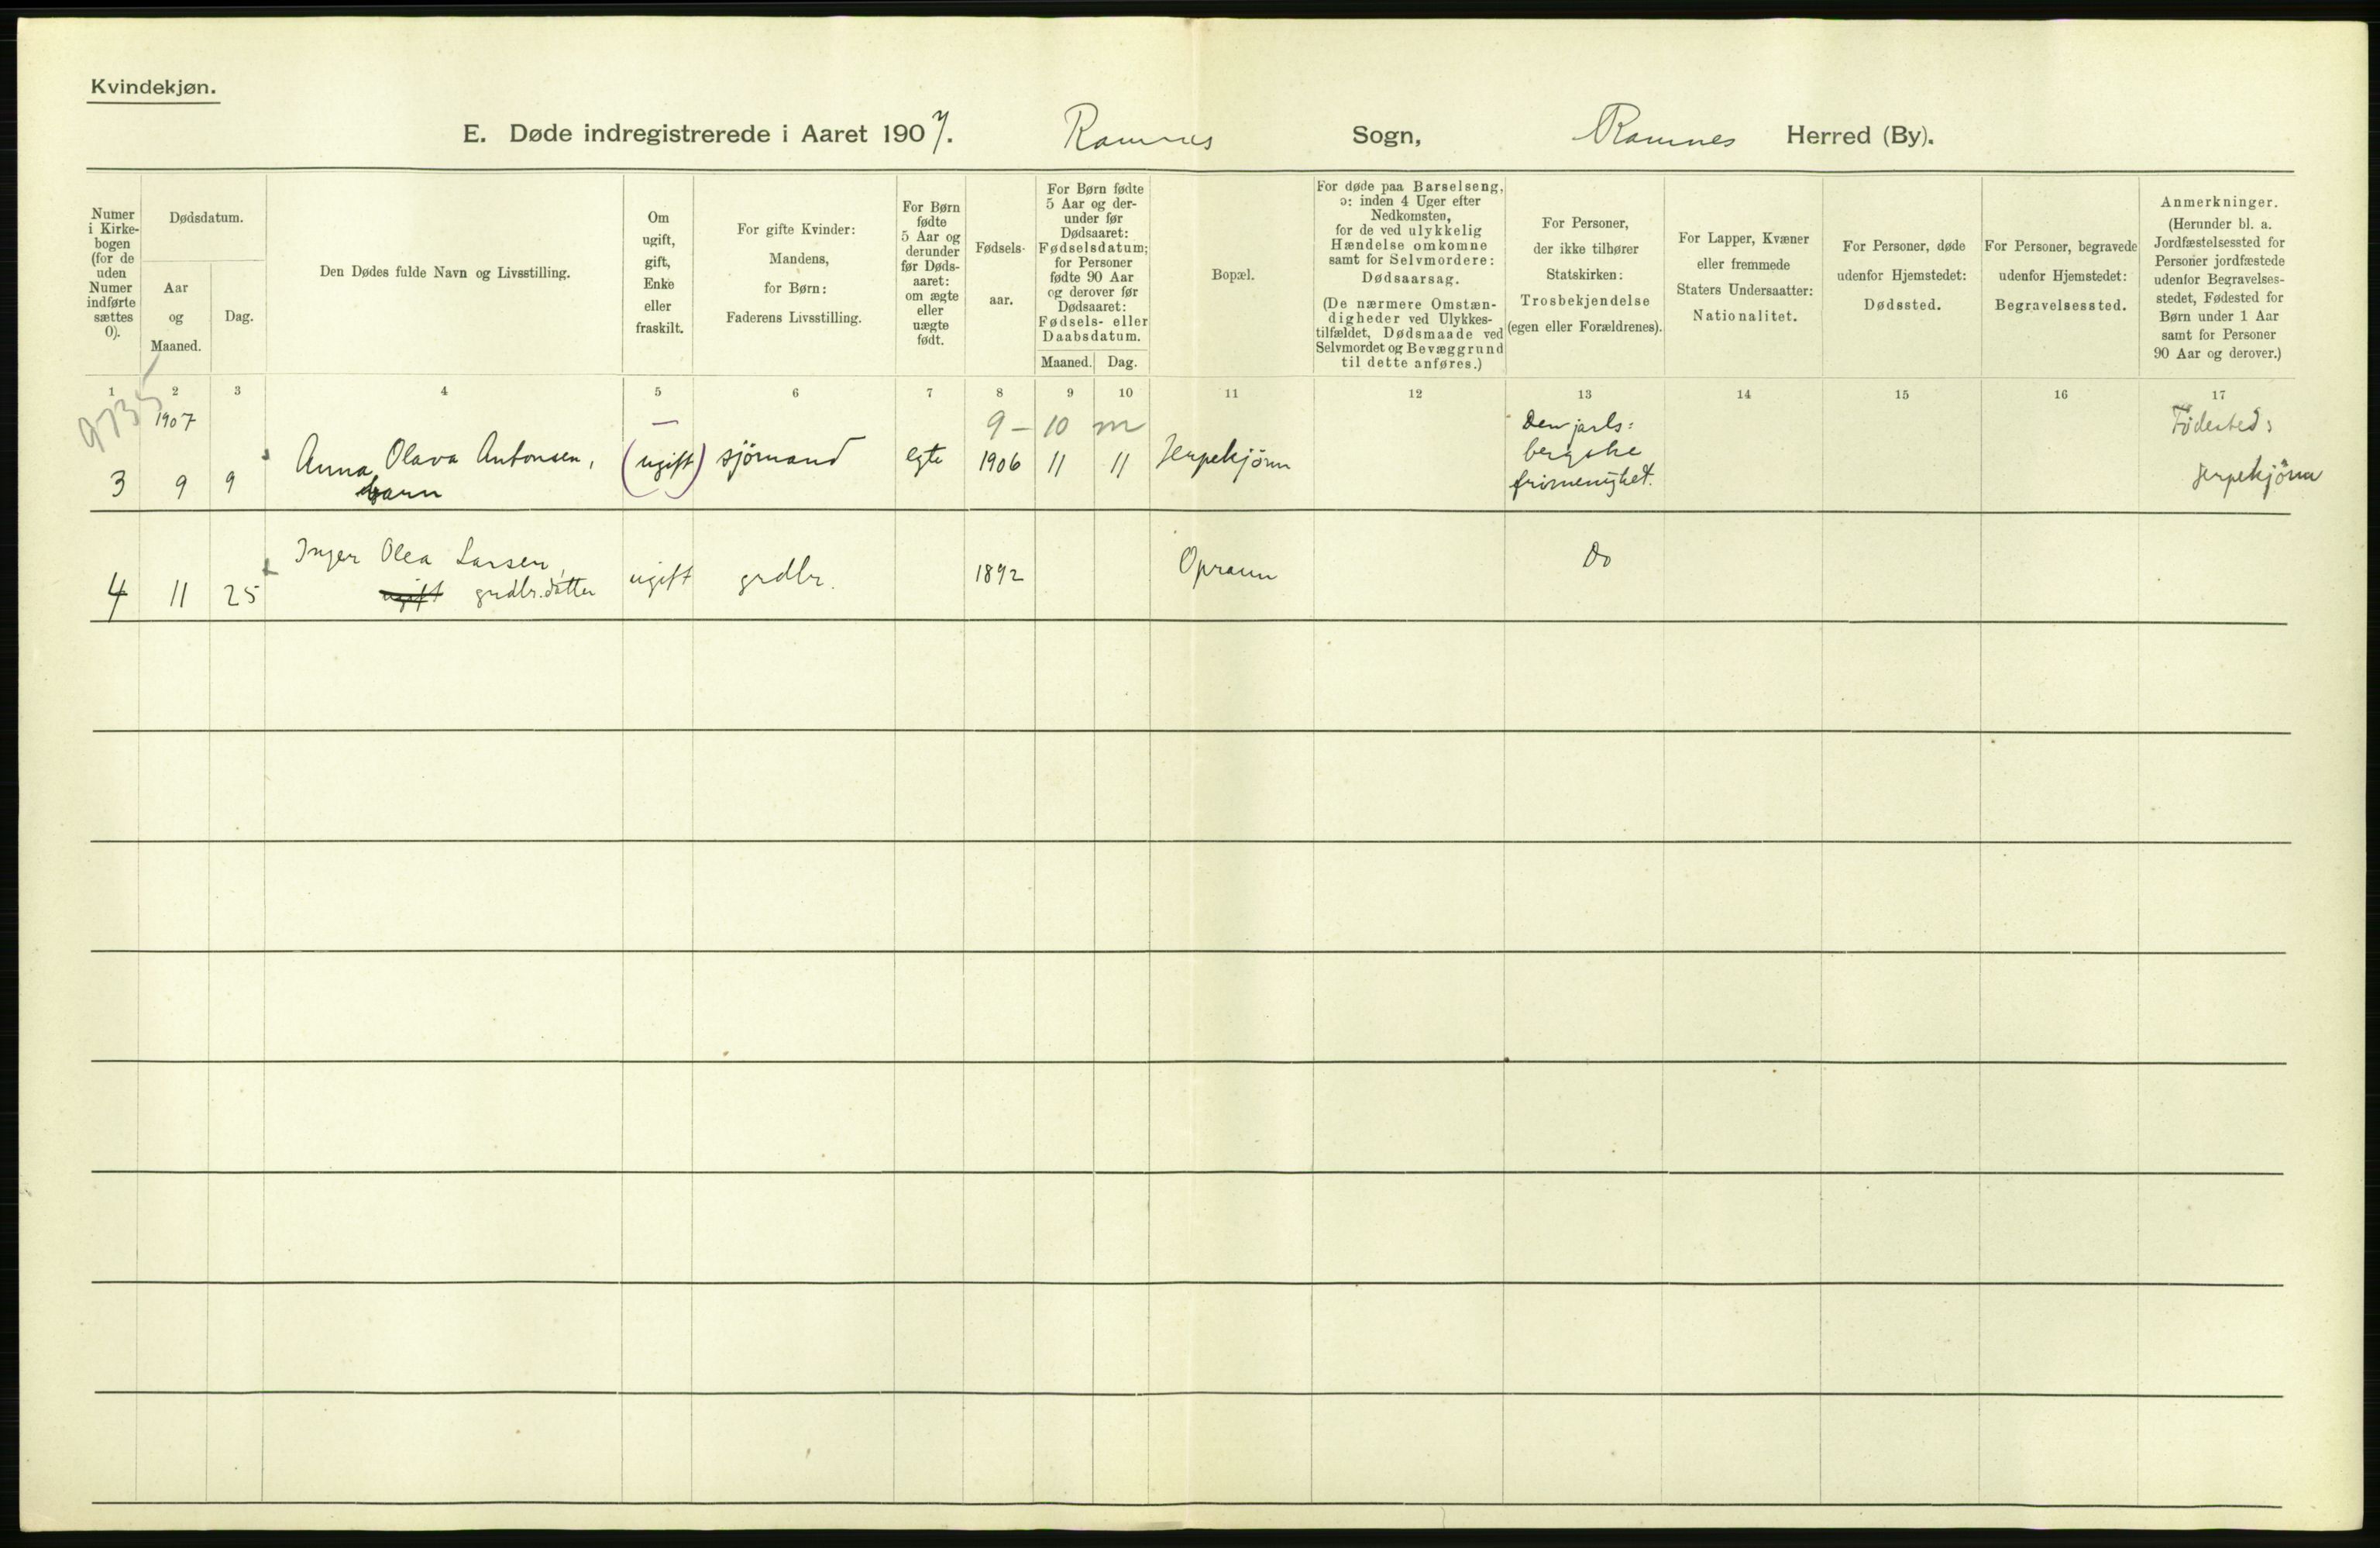 Kvindekjøn.
E. Døde indregistrerede i Aaret 1907. Ramnes Sogn, Ramnes Herred (By).
Numer
i Kirke-
bogen
(for de
uden
Numer
indførte
sættes
0).
Dødsdatum.
Aar
og
Maaned.
Dag.
Den Dødes fulde Navn og Livsstilling.
Om
ugift,
gift,
Enke
eller
fraskilt.
For gifte Kvinder:
Mandens,
for Børn:
Faderens Livsstilling.
For Børn
fødte
5 Aar og
derunder
før Døds-
aaret:
om ægte
eller
uægte
født.
Fødsels-
aar.
For Børn fødte
5 Aar og der-
under før
Dødsaaret:
Fødselsdatum;
for Personer
fødte 90 Aar
og derover før
Dødsaaret:
Fødsels- eller
Daabsdatum.
Maaned. Dag.
Bopæl.
For døde paa Barselseng,
ɔ: inden 4 Uger efter
Nedkomsten,
for de ved ulykkelig
Hændelse omkomne
samt for Selvmordere:
Dødsaarsag.
(De nærmere Omstæn-
digheder ved Ulykkes-
tilfældet, Dødsmaade ved
Selvmordet og Bevæggrund
til dette anføres.)
For Personer,
der ikke tilhører
Statskirken:
Trosbekjendelse
(egen eller Forældrenes).
For Lapper, Kvæner
eller fremmede
Staters Undersaatter:
Nationalitet.
For Personer, døde
udenfor Hjemstedet:
Dødssted.
For Personer, begravede
udenfor Hjemstedet:
Begravelsessted.
Anmerkninger.
(Herunder bl. a.
Jordfæstelsessted for
Personer jordfæstede
udenfor Begravelses-
stedet, Fødested for
Børn under 1 Aar
samt for Personer
90 Aar og derover.)
1 2 3 4 5 6 7 8 9 10 11 12 13 14 15 16 17
9735
1907
9 - 10 m
3 9 9 Anna Olava Antonsen,
barn
(ugift) sjömand egte 1906 11 11 Jerpekjönn
Den jarls:
bergske
frimenighet.
Födested:
Jerpekjönn
4 11 25 Inger Olea Larsen,
ugift grdbr.datter
ugift grdbr. 1892 Opraun Do